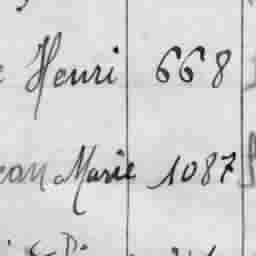 Henri 668
ean Marie 1087